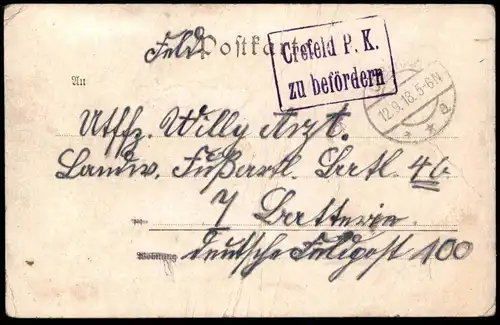 Feld Postkarte
Crefeld P. K.
zu befördern
12.9.18.5-6N
a
An
Utffz. Willy Arzt.
Landw. Fußartl. Batl. 46
7 Batterie.
in
Wohnung
Deutsche Feldpost 100